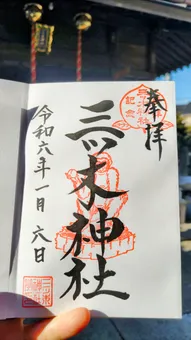 奉拝
三ツ木神社
令和六年一月六日
記念